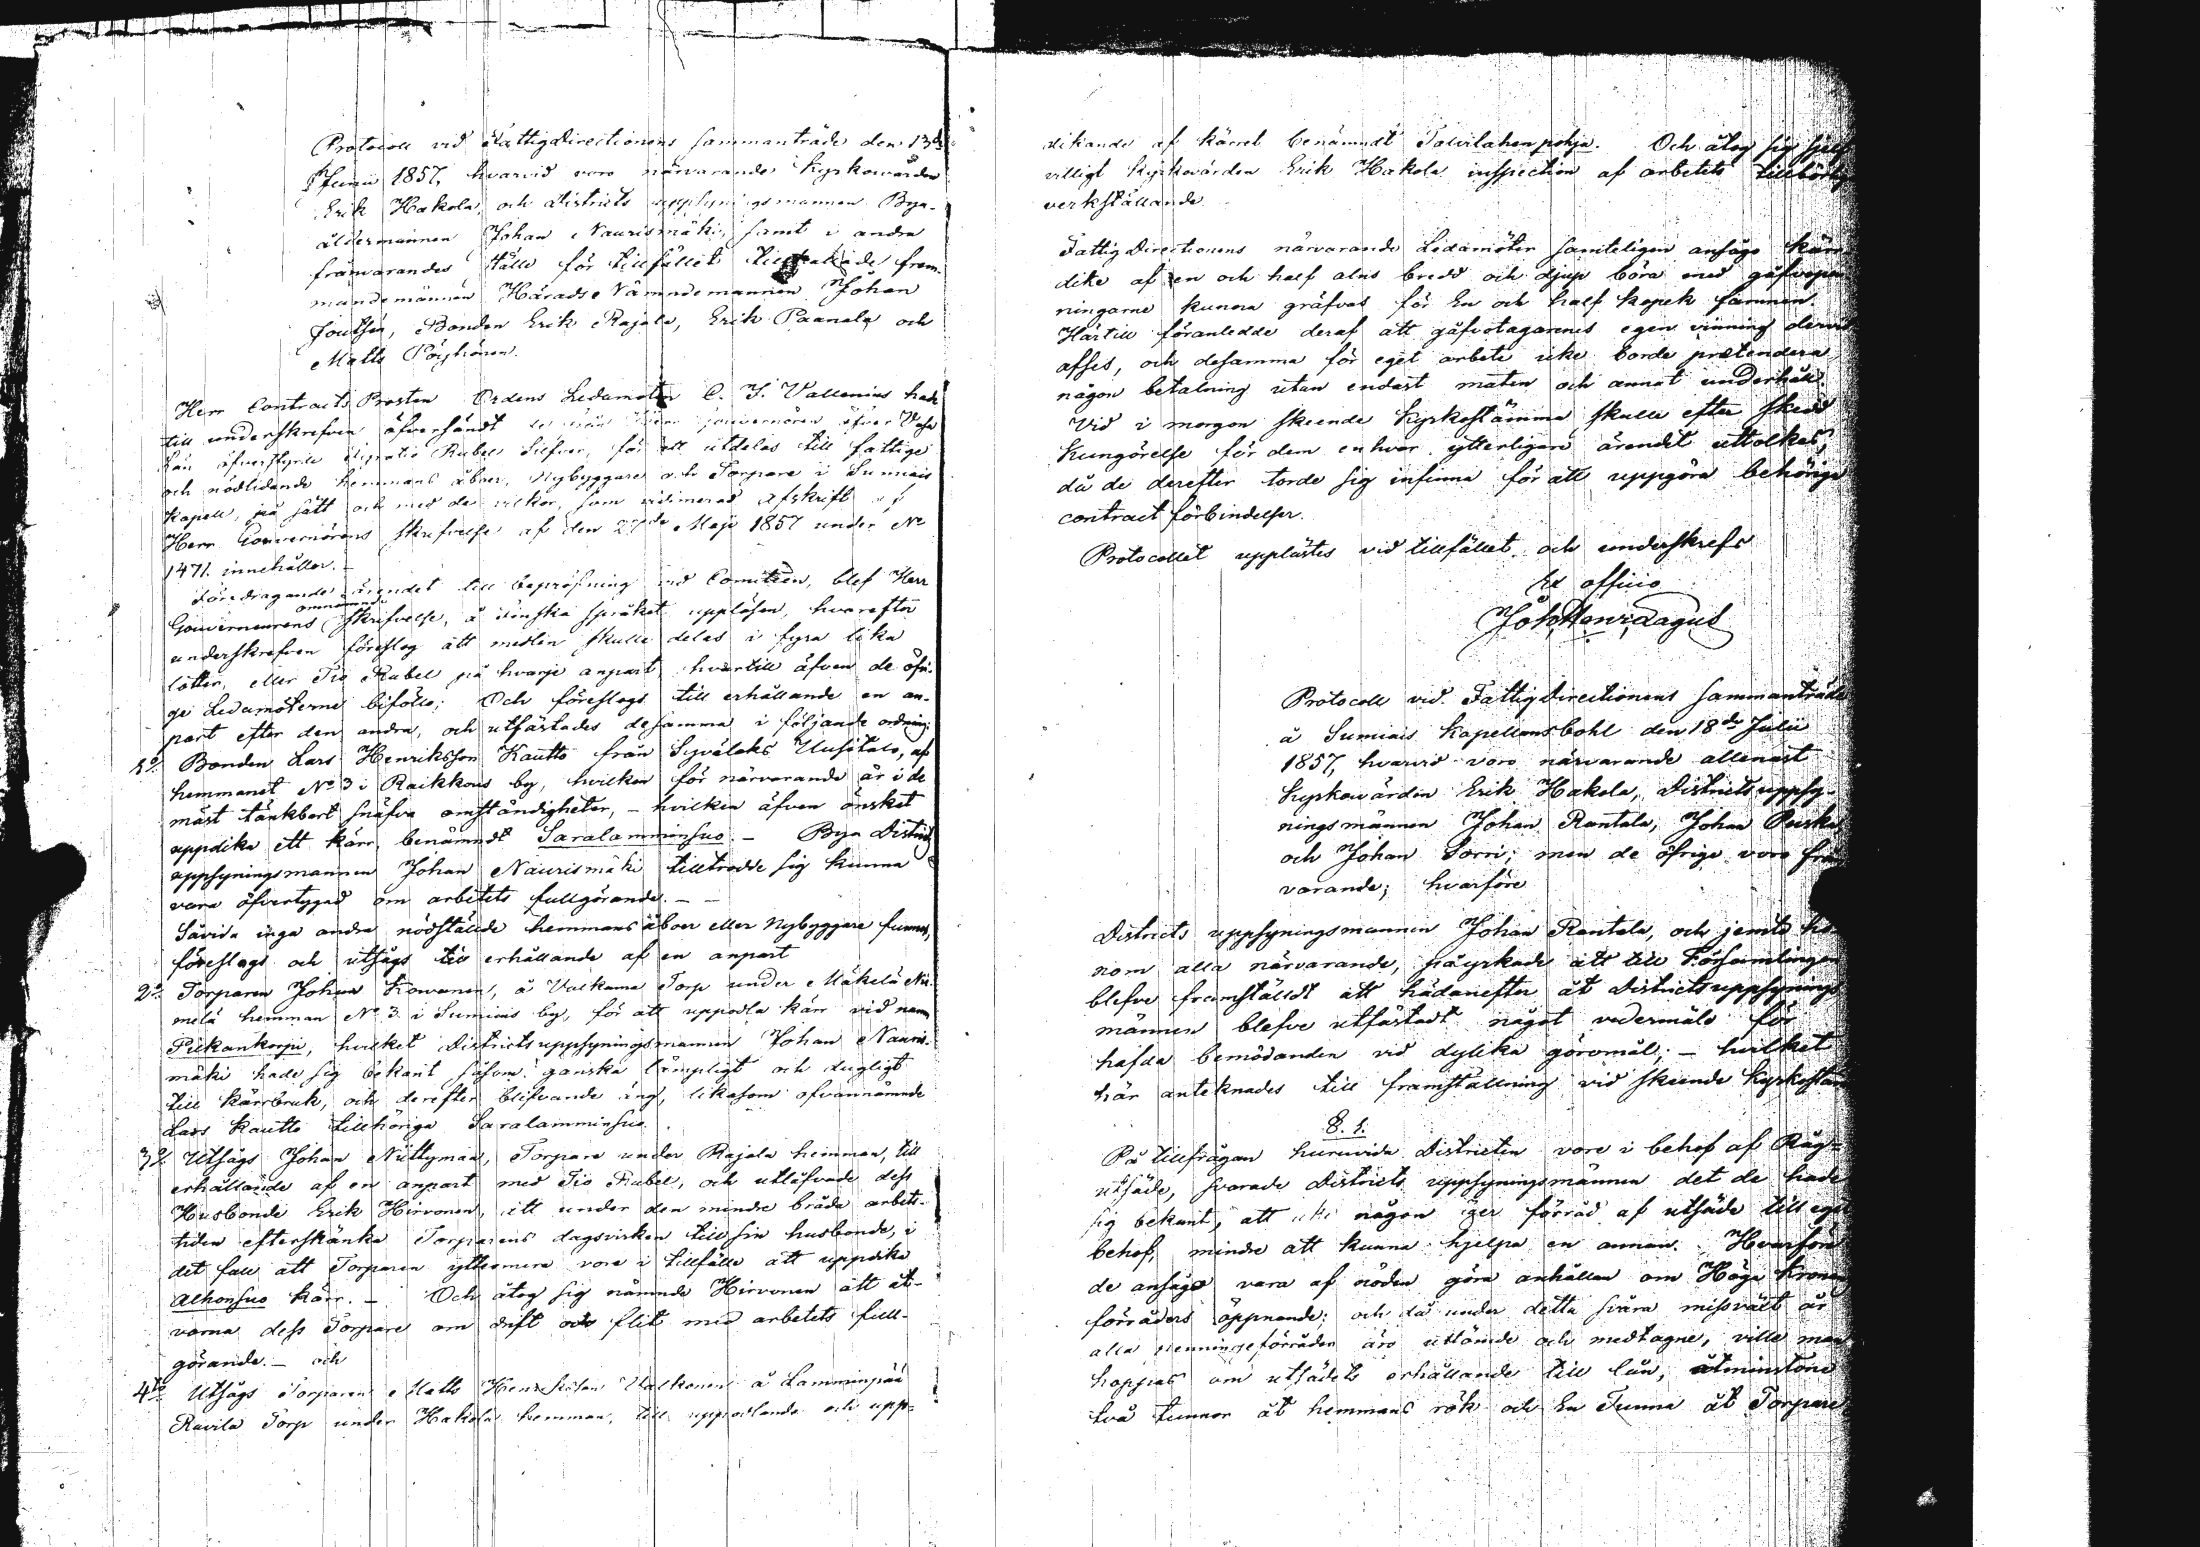 Protocoll vid Fattigdirectionens sammanträde den 13de
Junii 1857, hvarvid voro närvarande Kyrkowärden
Erik Hakola, och Districts uppsyningsmannen Bya-
åldermannen Johan Naurismäki, samt i andra
frånvarandes ställe för tillfället frem-
mande männen Härads Nämndemannen Johan
Joutsen, Bonden Erik Rajala, Erik Paanala och
Matts Pöyhönen.
Herr Contracts Prosten Ordens Ledamoten C. J. Vallenius hade
till underskrefven öfversändt öfver Vasa
Län Rubel Silfver, för att utdelas till fattige
och nödlidande hemmans åboer, Nybyggare och Torpare i Sumiais
Kapell, på sätt och med de vilkor, som vidimerad afskrift af
Herr Gouvernörens skrifvelse af den 27de Maji 1857 under No
1471. innehåller. –
Föredragande ärendet till bepröfning vid Comitéen, blef Herr
omnämnde
Gouverneurens skrifvelse, å finska språket uppläsen, hvarefter
underskrefven föreslog att medlen skulle delas i fyra lika
lotter, eller Tio Rubel på hvarje anpart, hvartill äfven de öfri-
ge Ledamöterne biföllo; Och föreslogs till erhållande en an-
part efter den andra, och utfästades desamma i följande ordning:
1o. Bonden Lars Henriksson Kautto från Syvälaks Uusitalo, af
hemmanet No 3 i Raikkous by, hvilken för närvarande är i de
mäst tänkbart snäfva omständigheter, – hvilken äfven önsket
uppdika ett kärr, benämndt Saralamminsuo. – Bya District
uppsyningsmannen Johan Naurismäki tilltrodde sig kunna
vara öfvertygad om arbetets fullgörande. – –
Såvida inga andra nödstälde hemmansåboer eller Nybyggare funnos,
föreslogs och utsågs till erhållande af en anpart
2o. Torparen Johan Kowanen, å Valkama Torp under Mäkelä Nie-
melä hemman No 3 i Sumiais by, för att uppodla kärr vid namn
Pitkänkorpi, hvilket Districts uppsyningsmannen Johan Nauris-
mäki hade sig bekant såsom ganska lämpligt och dugligt
till kärrbruk, och derefter blifvande äng, likasom ofvannämnde
Lars Kautto tillhöriga Saralamminsuo.
3o. Utsågs Johan Niittyman, Torpare under Rajala hemman, till
erhållande af en anpart med Tio Rubel, och utläfvade dess
Husbonde Erik Hirvonen, att under den mindre bråda arbets-
tiden efterskänka Torparens dagsvirken till sin husbonde, i
det fall att Torparen yttermera vore i tillfälle att uppdika
Alhonsuo kärr. – Och åtog sig nämnde Hirvonen att åt-
varna dess Torpare om drift och flit med arbetets full-
görande. – och
4to. Utsågs Torparen Matts Henriksson Valkonen å Lamminpää
Ravila Torp under Hakola hemman, till uppodlande och upp-
dikande af kärret benämndt Talvilahenpohja. Och åtog sig sjelf
villigt Kyrkovärden Erik Hakola inspection af arbetets tillbörliga
verkställande.
Fattig Directionens närvarande Ledamöter samteligen ansågo kärr
dike af en och half alns bredd och djup böra med gåfvopen
ningarne kunna gräfvas för En och half kopek famnen.
Härtill föranledde deraf att gåfvotagarnes egen vinning dervid
afses, och desamma för eget arbete icke borde prætendera
någon betalning utan endast maten och annat underhåll.
Vid i morgon skeende Kyrkostämma skulle efter skedd
kungörelse för dem en hvar ytterligare ärendet uttolkas,
då de derefter torde sig infinna för att uppgöra behörige
contract förbindelser.
Protocollet upplästes vid tillfället och underskrefs
Ex officio
Joh Henr Dagus
Protocoll vid Fattigdirectionens sammanträde
å Sumiais Kapellansbohl den 18de Julii
1857, hvarvid voro närvarande allenast
Kyrkowärden Erik Hakola, Districtsuppsy-
ningsmännen Johan Rantala, Johan Puska
och Johan Sorri; men de öfriga voro från
varande; hvarföre
Districts uppsyningsmannen Johan Rantala, och jemte ho
nom alla närvarande, påyrkade att till Församlingen
blefve framstäldt att hädanefter åt Districtsuppsynings
männen blefve utfästadt något vedermäle för
hafda bemödanden vid dylika göromål; – hvilket
här anteknades till framställning vid skeende Kyrkostäm
8. §.
På tillfrågan huruvida Districten vore i behof af Råg-
utsäde, svarade Districts uppsyningsmännen det de hade
sig bekant, att icke någon äger förråd af utsäde till eget
behof, mindre att kunna hjelpa en annan. Hvarföre
de ansågo vara af nöden göra anhållan om Höga Krono
förråders öppnande; och då under detta svåra missväxt år
alla penningeförråden äro uttömde och medtagne, ville man
hoppas om utsädets erhållande till lån, åtminstone
två tunnor åt hemmans rök och En Tunna åt Torpare